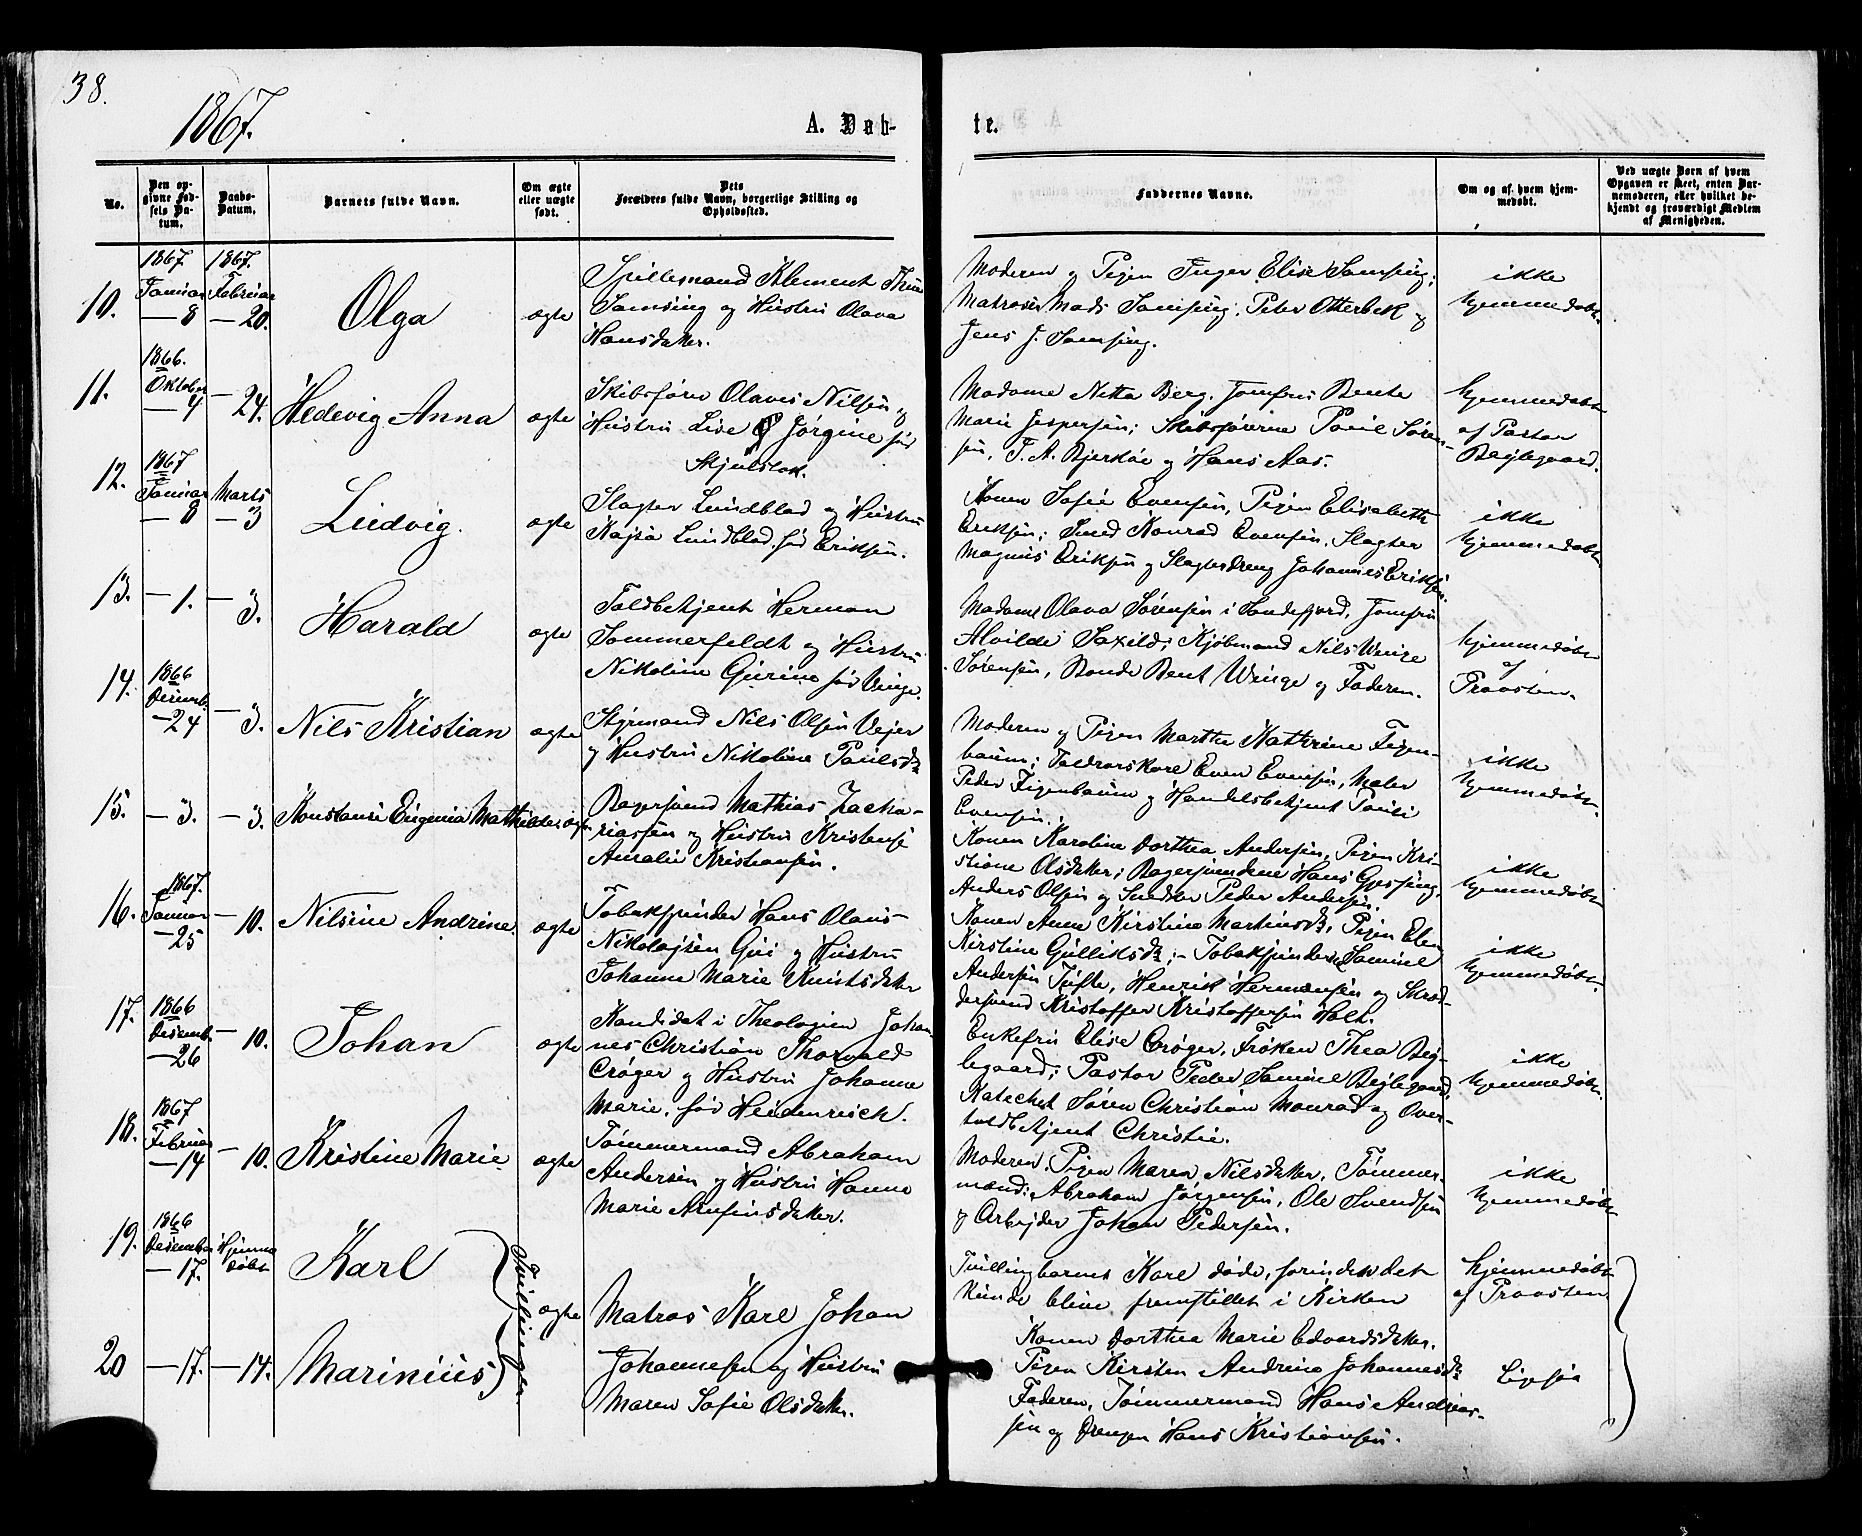 38.
1867.
A. Døb-
te.
No.
Den op-
givne Fød-
sels Da-
tum.
Daabs-
Datum.
Barnets fulde Navn.
Om ægte
eller uægte
født.
Dets
Forældres fulde Navn, borgerlige Stilling og
Opholdssted.
Faddernes Navne.
Om og af hvem hjem-
medøbt.
Ved uægte Børn af hvem
Opgaven er skeet, enten Bar-
nemoderen, eller hvilket be-
kjendt og troværdigt Medlem
af Menigheden.
10.
1867
Januar
— 8
1867.
Februar
— 20.
Olga
ægte
Spillemand Klement Thue
Samsing og Hustru Olava
Hansdatter.
Moderen og Pigen Inger Elise Samsing;
Matroser Mads Samsing, Peter Otterbek og
Jens J. Samsing.
ikke
hjemmedøbt.
11.
1866.
Oktober
— 4
— 24.
Hedevig Anna
ægte
Skibsfører Olaves Nilsen og
Hustru Lise Jørgine fød
Skjulstok.
Madame Netta Berg, Jomfru Bente
Marie Jespersen; Skibsførerne Poul Søren-
sen, T. A. Bjerkøe og Hans Aas.
hjemmedøbt
af Pastor
Bøjlegaard.
12.
1867
Januar
— 8
Marts
— 3
Ludvig.
ægte
Slagter Lundblad og Hustru
Kajsa Lundblad, fød Eriksen.
Konen Sofie Evensen, Pigen Elisabeth
Eriksen; Smed Konrad Evensen, Slagter
Magnus Eriksen og Slagterdreng Johannes Eriksen.
ikke
hjemmedøbt
13.
— 1.
— 3.
Harald
ægte
Toldbetjent Herman
Sommerfeldt og Hustru
Nikoline Gurine fød Vinge.
Madame Olava Sørensen i Sandefjord, Jomfru
Alvilde Saxild; Kjøbmand Nils Winge
Sørensen, Bonde Bent Winge og Faderen.
hjemmedøbt
af
Provsten.
14.
1866
Desemb.
— 24
— 3.
Nils Kristian
ægte
Styrmand Nils Olsen Vejer
og Hustru Nikoline Paulsdtr
Moderen og Pigen Marthe Kathrine Figen-
baum; Toldrorskarl Even Evensen, Maler
Peder Figenbaum og Handelsbetjent Pauli
Evensen.
ikke
hjemmedøbt.
15.
— 3.
— 3.
Konstanse Eugenia Mathilde.
ægte
Bagersvend Mathias Zacha-
riassen og Hustru Kristense
Amalie Kristiansen.
Konen Karoline Dorthea Andersen, Pigen Kri-
stiane Olsdatter; Bagersvendene Hans Gjessing,
Anders Olsen og Snedker Peder Andersen.
ikke
hjemmedøbt
16.
1867.
Januar
— 25
— 10.
Nilsine Andrine.
ægte
Tobakspinder Hans Olaus
Nikolajsen Gui og Hustru
Johanne Marie Knutsdatter
Konen Anne Kirstine Martinsd., Pigen Elen
Kirstine Gulliksdtr; Tobakspinderne Samuel
Andersen Tufte, Henrik Hermansen og Skræd-
dersvend Kristoffer Kristoffersen Holt.
ikke
hjemmedøbt.
17.
1866
Desemb.
— 26
— 10.
Johan
ægte
Kandidat i Theologien Johan-
nes Christian Thorvald
Crøger og Hustru Johanne
Marie, fød Heidenreich.
Enkefru Elise Crøger, Frøken Thea Bøj-
legaard; Pastor Peder Samuel Bøjlegaard,
Katechet Søren Christian Monrad og Over-
toldbetjent Christie.
ikke
hjemmedøbt.
18.
1867
Februar
— 14
— 10.
Kristine Marie
ægte
Tømmermand Abraham
Andersen og Hustru Hanne
Marie Arnfinsdatter.
Moderen, Pigen Maren Nilsdatter, Tømmer-
mænd: Abraham Jørgensen, Ole Svendsen
og Arbejder Johan Pedersen.
ikke
hjemmedøbt
19.
1866
Desember
— 17.
Hjemme
døbt
Karl
Tvillinger.
ægte
Matros Karl Johan
Johannesen og Hustru
Maren Sofie Olsdatter.
Tvillingbarnet Karl døde, førend det
kunde blive fremstillet i Kirken
hjemmedøbt
af Provsten
20
— 17.
— 14.
Marinius
Konen Dorthea Marie Edvardsdatter.
Pigen Kirsten Andrine Johannesd.
Faderen, Tømmermand Hans Andrias-
sen og Drengen Hans Kristiansen.